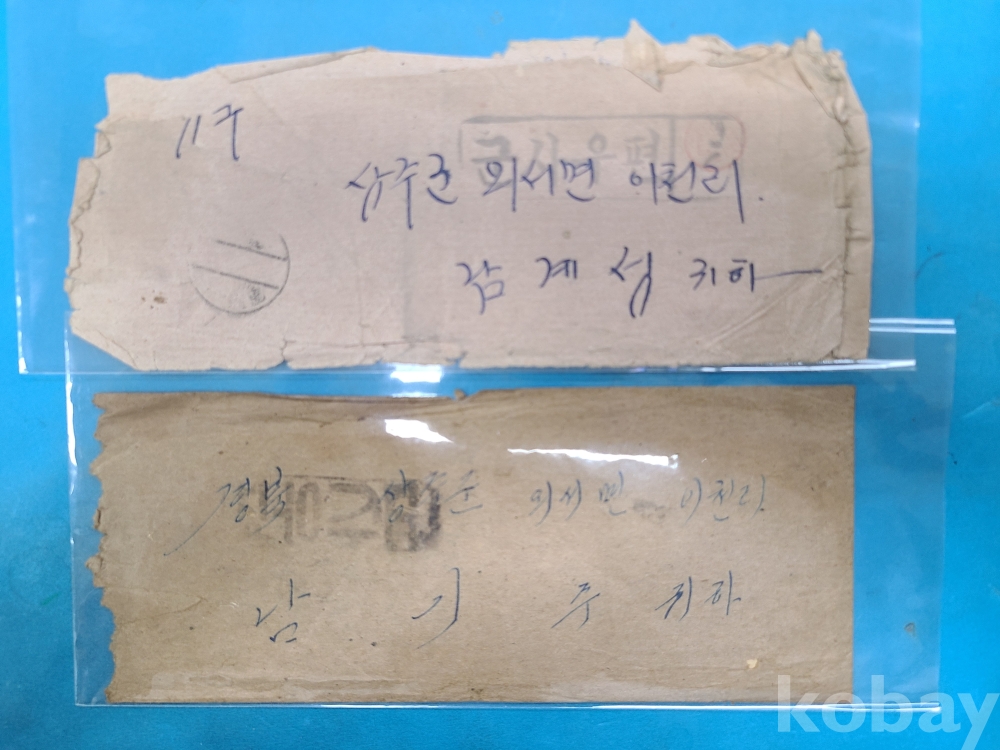 상주군 외서면 이천리.
계성 귀하
경북 상주군 외서면 이천리.
남 기 주 귀하
kobay